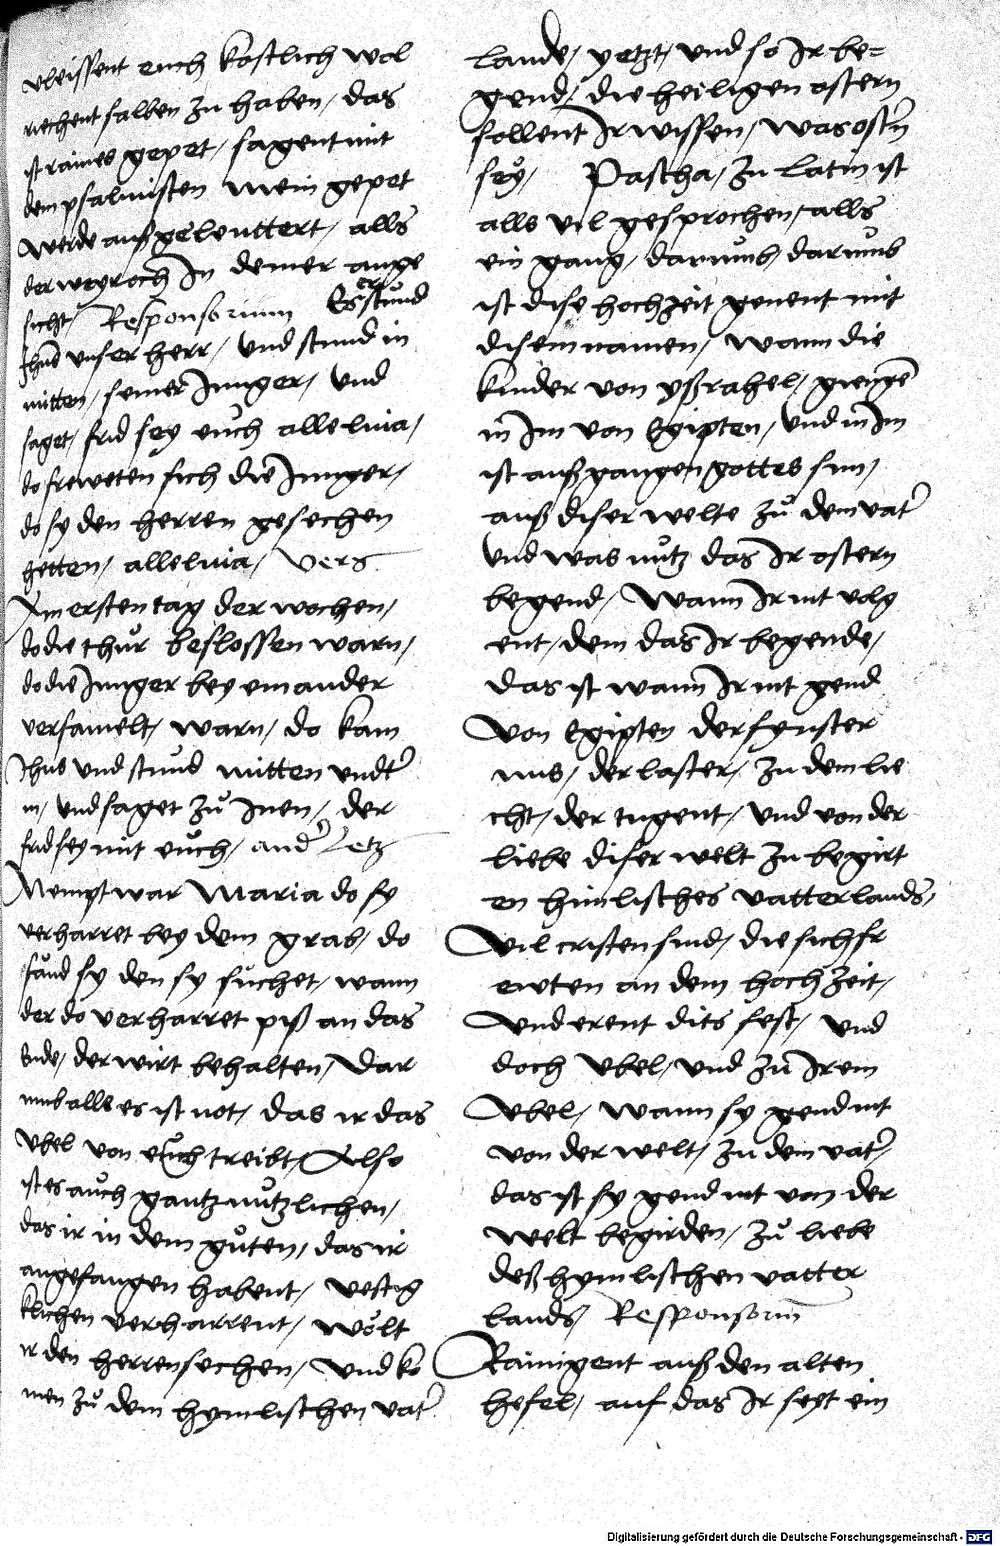 vleissent euch kostlich wol
riechent salben zu haben, das
ist raines gepet, sagent mit
dem psalmisten Mein gepet
werde außgeleuttert, alls
der weyroch In deiner ange
sicht, Responsorium Es erstund
Jhus vnser herr, vnd stund in
mitten, seiner Junger, vnd
saget, frid sey euch alleluia,
do freweten sich die Junger,
do sy den herren gesechen
hetten, alleluia, Vers
Am ersten tag der wochen,
do die thür beslossen warn,
do die Junger bey einander
versamelt, warn, do kam
Jhus vnd stund mitten vndter
in, vnd saget zů Inen, der
frid sey mit euch, ander Letz
Nempt war Maria do sy
verharret bey dem grab, do
fand sy den sy sůchet, wann
der do verharret piß an das
ende, der wirt behalten, Dar
umb alls es ist not, das ir das
vbel von euch treibt, Also
ist es auch gantz nutzlichen,
das ir in dem gůten, das ir
angefangen habent, vestig
klichen verharrent, wölt
ir den herren sechen, vnd ko
men zů dem hymlischen vater
lande, yetzt, vnd so Ir be=
gend, die heiligen ostern
sollent Ir wissen, was ostern
sey, Pascha, zu Latin ist
alls vil gesprochen, alls
ein gang, darumb, darumb
ist dise hochzeit genent mit
disem namen, wann die
kinder von yßrahel, giengen
in Im von Egipten, vnd in Im
ist außgangen gottes sun,
auß diser welte zů dem vater
vnd was nutz das Ir ostern
begend, Wann Ir nit volg
ent, dem das Ir begende,
das ist wann Ir nit gend
von Egipten der fynster
nus, der laster, zu dem lie
cht, der tugent, vnd von der
liebe diser welt zu begirt
en himlisches vatterlands,
vil cristen sind, die sich fr
ewten an dem hochzeit,
vnd erent dits fest, vnd
doch vbel, vnd zů Irem
vbel, wann sy gend nit
von der welt, zu dem vater,
das ist sy gend nit von der
welt begirden, zů liebe
deß hymlischen vatter
lands, Responsorium
Rainigent auß den alten
hefel, auf das Ir seyt ein
Digitalisierung gefördert durch die Deutsche Forschungsgemeinschaft - DFG